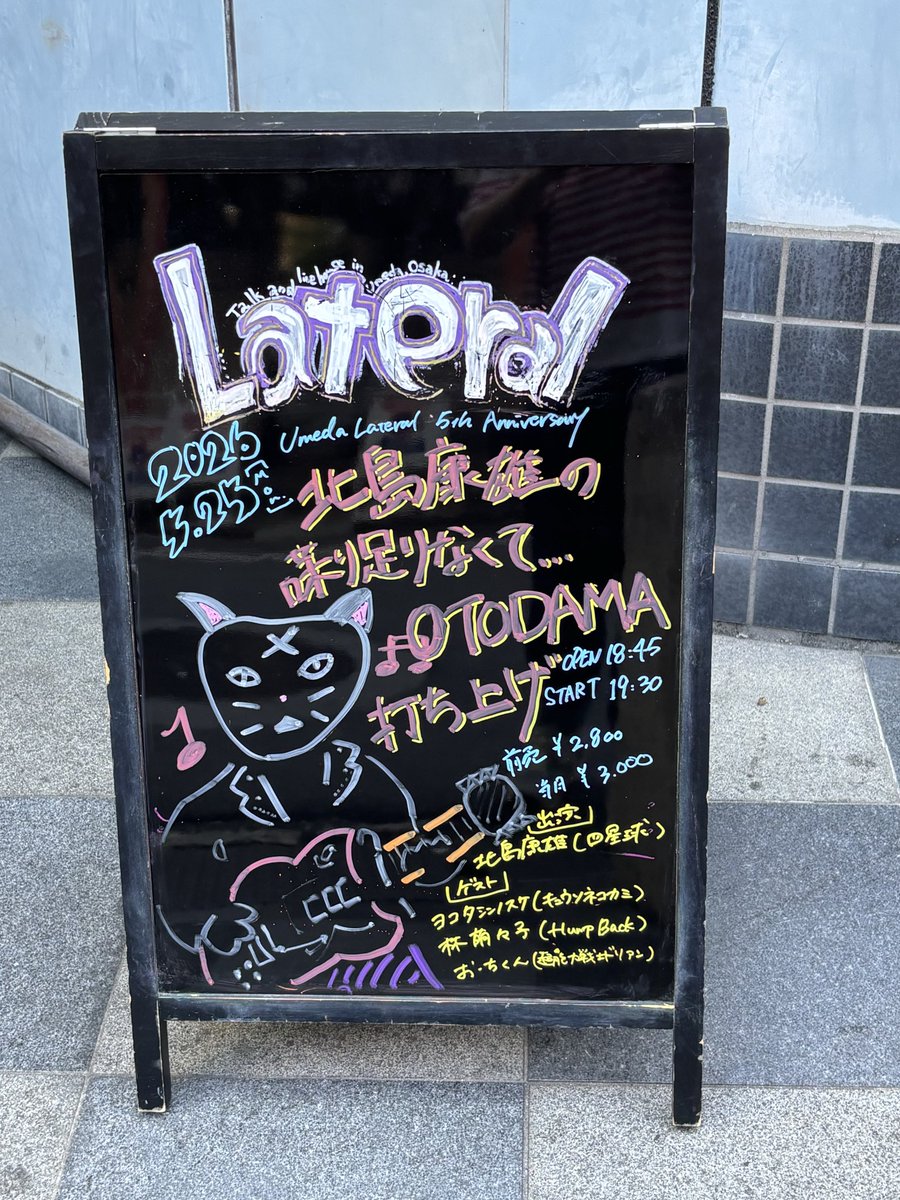 Talk and live house in Umeda, Osaka..
Lateral
Umeda Lateral 5th Anniversary
2026
5.25[Mon]
北島康雄の
喋り足りなくて....
OTODAMA
打ち上げ
OPEN 18:45
START 19:30
前売 ¥2,800
当日 ¥3,000
出演
北島康雄(四星球)
ゲスト
ヨコタシンノスケ(キュウソネコカミ)
林萌々子(Hump Back)
おーちくん(超能力戦士ドリアン)